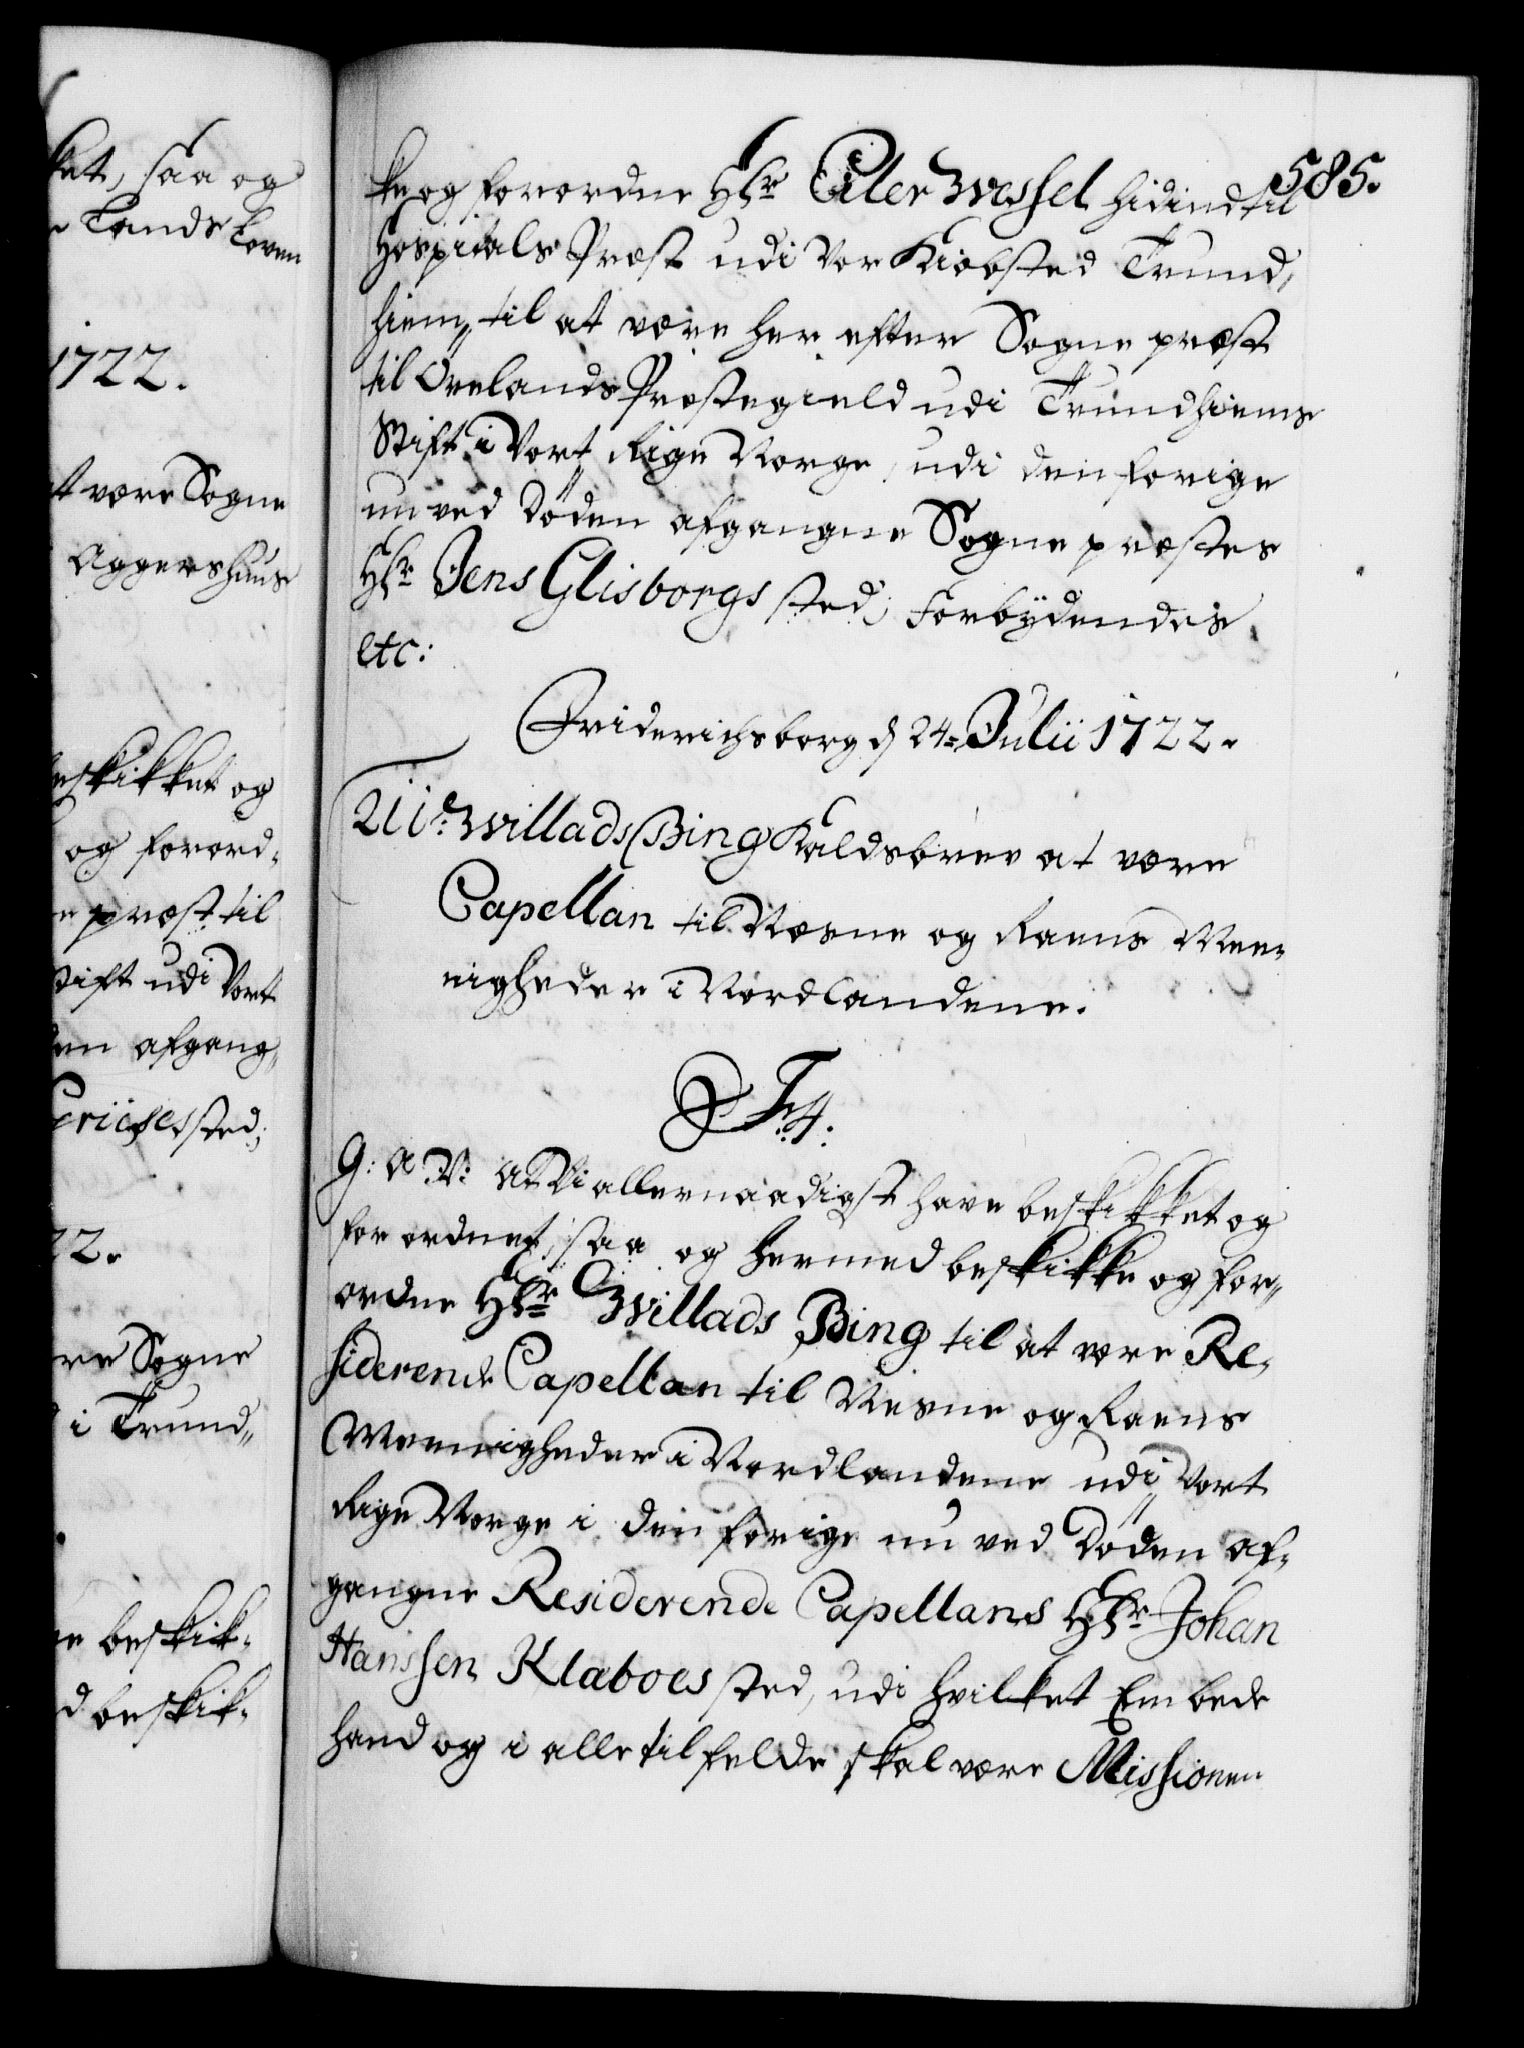 ket, saa og
Lands Loven
1722.
at være Sogne
Aggershuus
beskikket og
og forord-
præst til
Stift udi Vort
den afgang-
sted;
22.
være Sogne
i Trund-
beskik-
beskik-
585.
ke og forordne Hr Eiler Wessel hidindtil
Hospitals Præst udi Vor Kiøbsted Trund-
hiem, til at være her efter Sogne præst
til Ørelands Præstegield udi Trundhiems
Stift i Vort Rige Norge, udi den forige
nu ved Døden afgangne Sogne præstes
Hr Jens Glisborgs sted; Forbydendes
etc:
Friderichsborg d 24 Julii 1722.
Willads Bing Kaldsbrev at være
Capellan til Næsne og Raens Mee-
nigheder i Nordlandene.
F. 4.
G: A V: At Vi allernaadigst have beskikket og
forordnet, saa og hermed beskikke og for-
ordne Hr Willads Bing til at være Re-
siderende Capellan til Nesne og Raens
Meenigheder i Nordlandene udi Vort
Rige Norge i den forige nu ved Døden af-
gangne Residerende Capellans Hr Johan
Hanssen Klaboes sted, udi hvilket Embede
hand og i alle tilfelde skal være Missionen